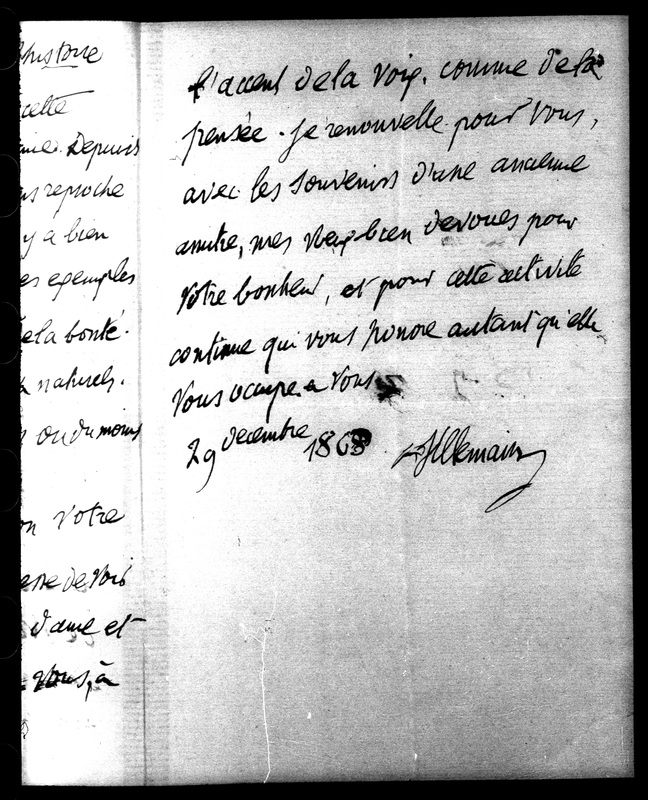 histoire
cette
Depuis
reproche
y a bien
es exemples
de la bonté.
naturels.
ou du moins
on Votre
esse de Vois
d'ame et
Vous, à
l'accent de la Voix, comme de la
pensée. Je renouvelle pour Vous,
avec les Souvenirs d'une ancienne
amitié, mes Vœux bien devoués pour
Votre bonheur, et pour cette activité
continue qui vous honore autant qu'elle
Vous occupe. a Vous
29 decembre 1868 Villemain